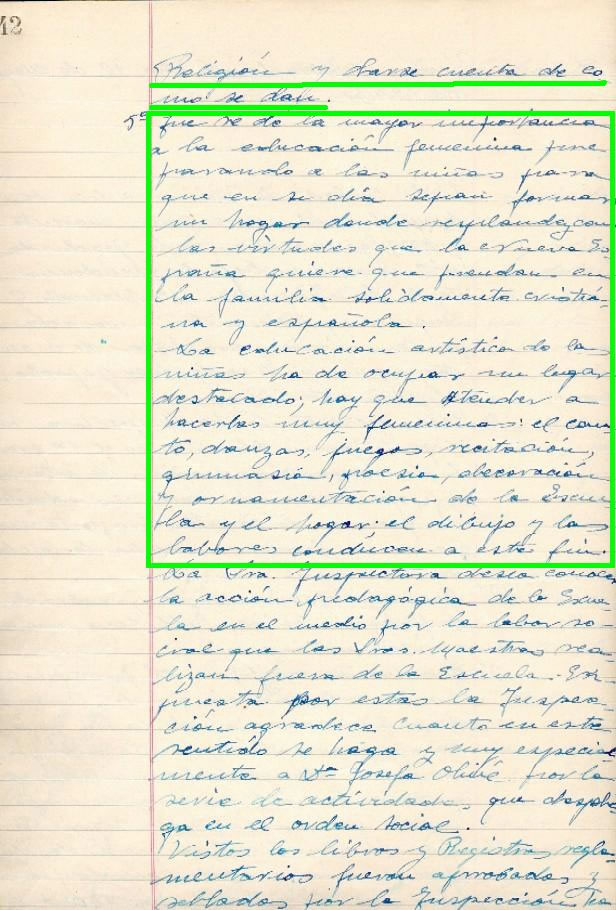 12
Religión y darse cuenta de co
mo se dan.
5º Que se dé la mayor importancia
a la educación femenina pre
parando a las niñas para
que en su día sepan formar
un hogar donde resplandezcan
las virtudes que la nueva Es
paña quiere que prendan en
la familia sólidamente cristia-
na y española.
La educación artística de las
niñas ha de ocupar un lugar
destacado; hay que atender a
hacerlas muy femeninas: el can
to, danzas, juegos, recitación,
gimnasia, poesia, decoración
y ornamentación de la Escue
la y el hogar: el dibujo y las
labores conducen a este fin.
La Sra. Inspectora desea conocer
la acción pedagógica de la Escue
la en el medio por la labor so-
cial que las Sras. Maestras rea
lizan fuera de la Escuela. Ex-
puesta por estas la Inspec-
ción agradece cuanto en este
sentido se haga y muy especial
mente a Dª Josefa Olivé por la
serie de actividades que desplie
ga en el orden social.
Vistos los libros y Registros regla
mentarios fueron aprobados y
sellados por la Inspección